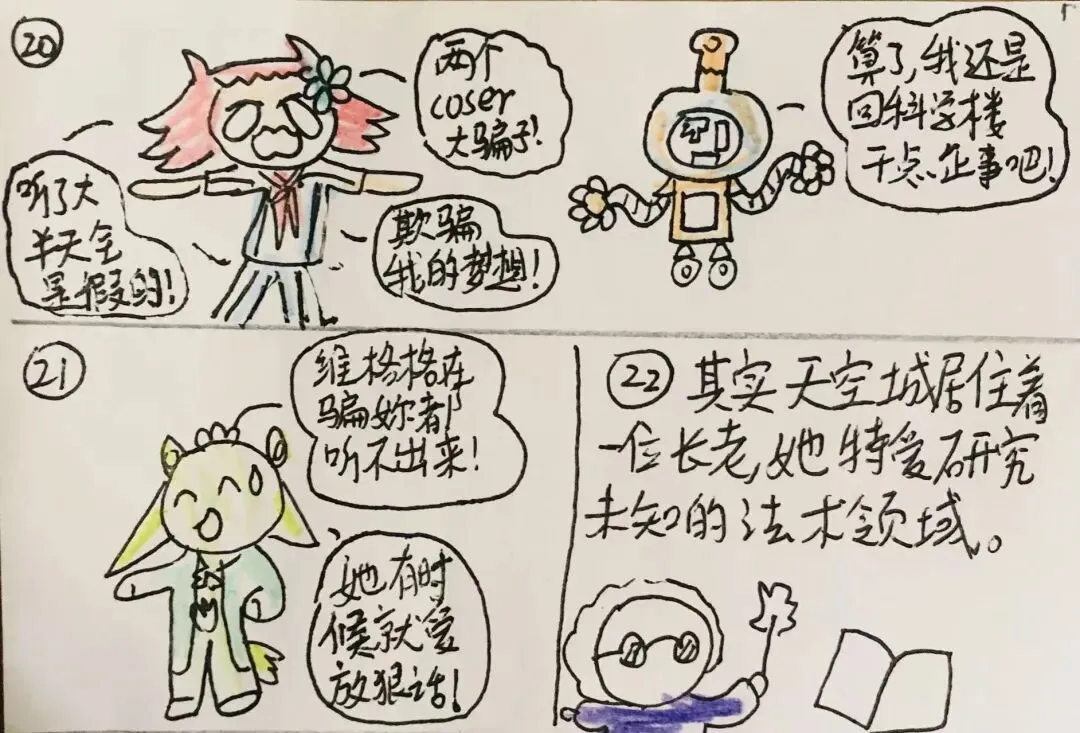 20
两个
coser
大骗子!
听了大
半天全
是假的!
欺骗
我的梦想!
算了,我还是
回科学楼
干点正事吧!
21
维格格在
骗妳都
听不出来!
她有时
候就爱
放狠话!
22 其实天空城居住着
一位长老,她特爱研究
未知的法术领域。